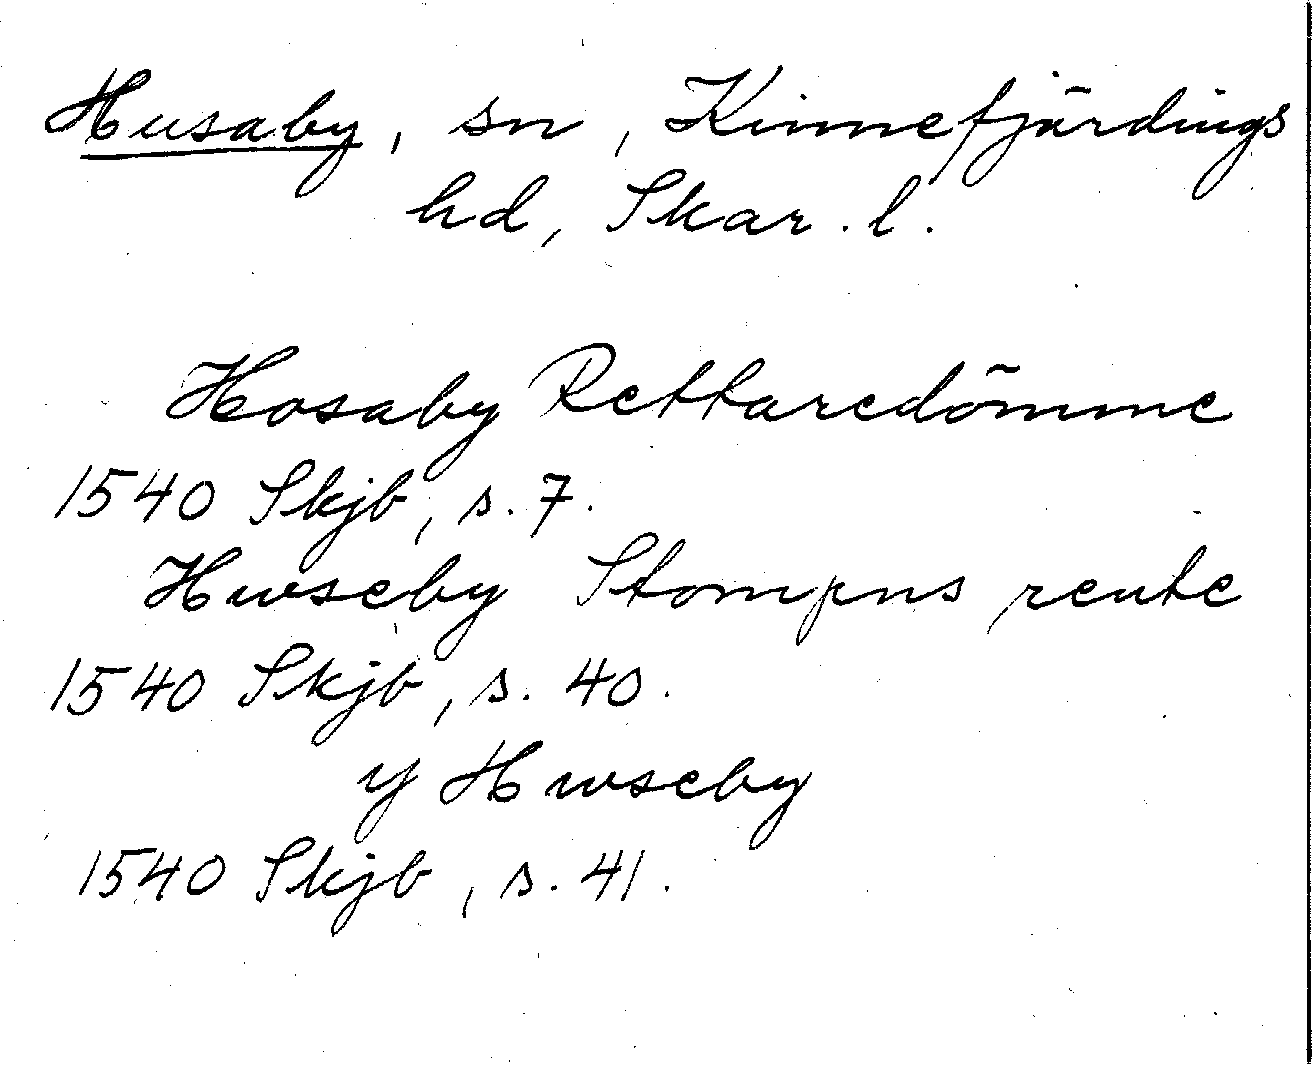 Husaby, sn, Kinnefjärdings
hd, Skar. l.
Hosaby Rettaredömme
1540 Skjb, s. 7.
Hwseby Stompns rente
1540 Skjb, s. 40.
y Hwseby
1540 Skjb, s. 41.